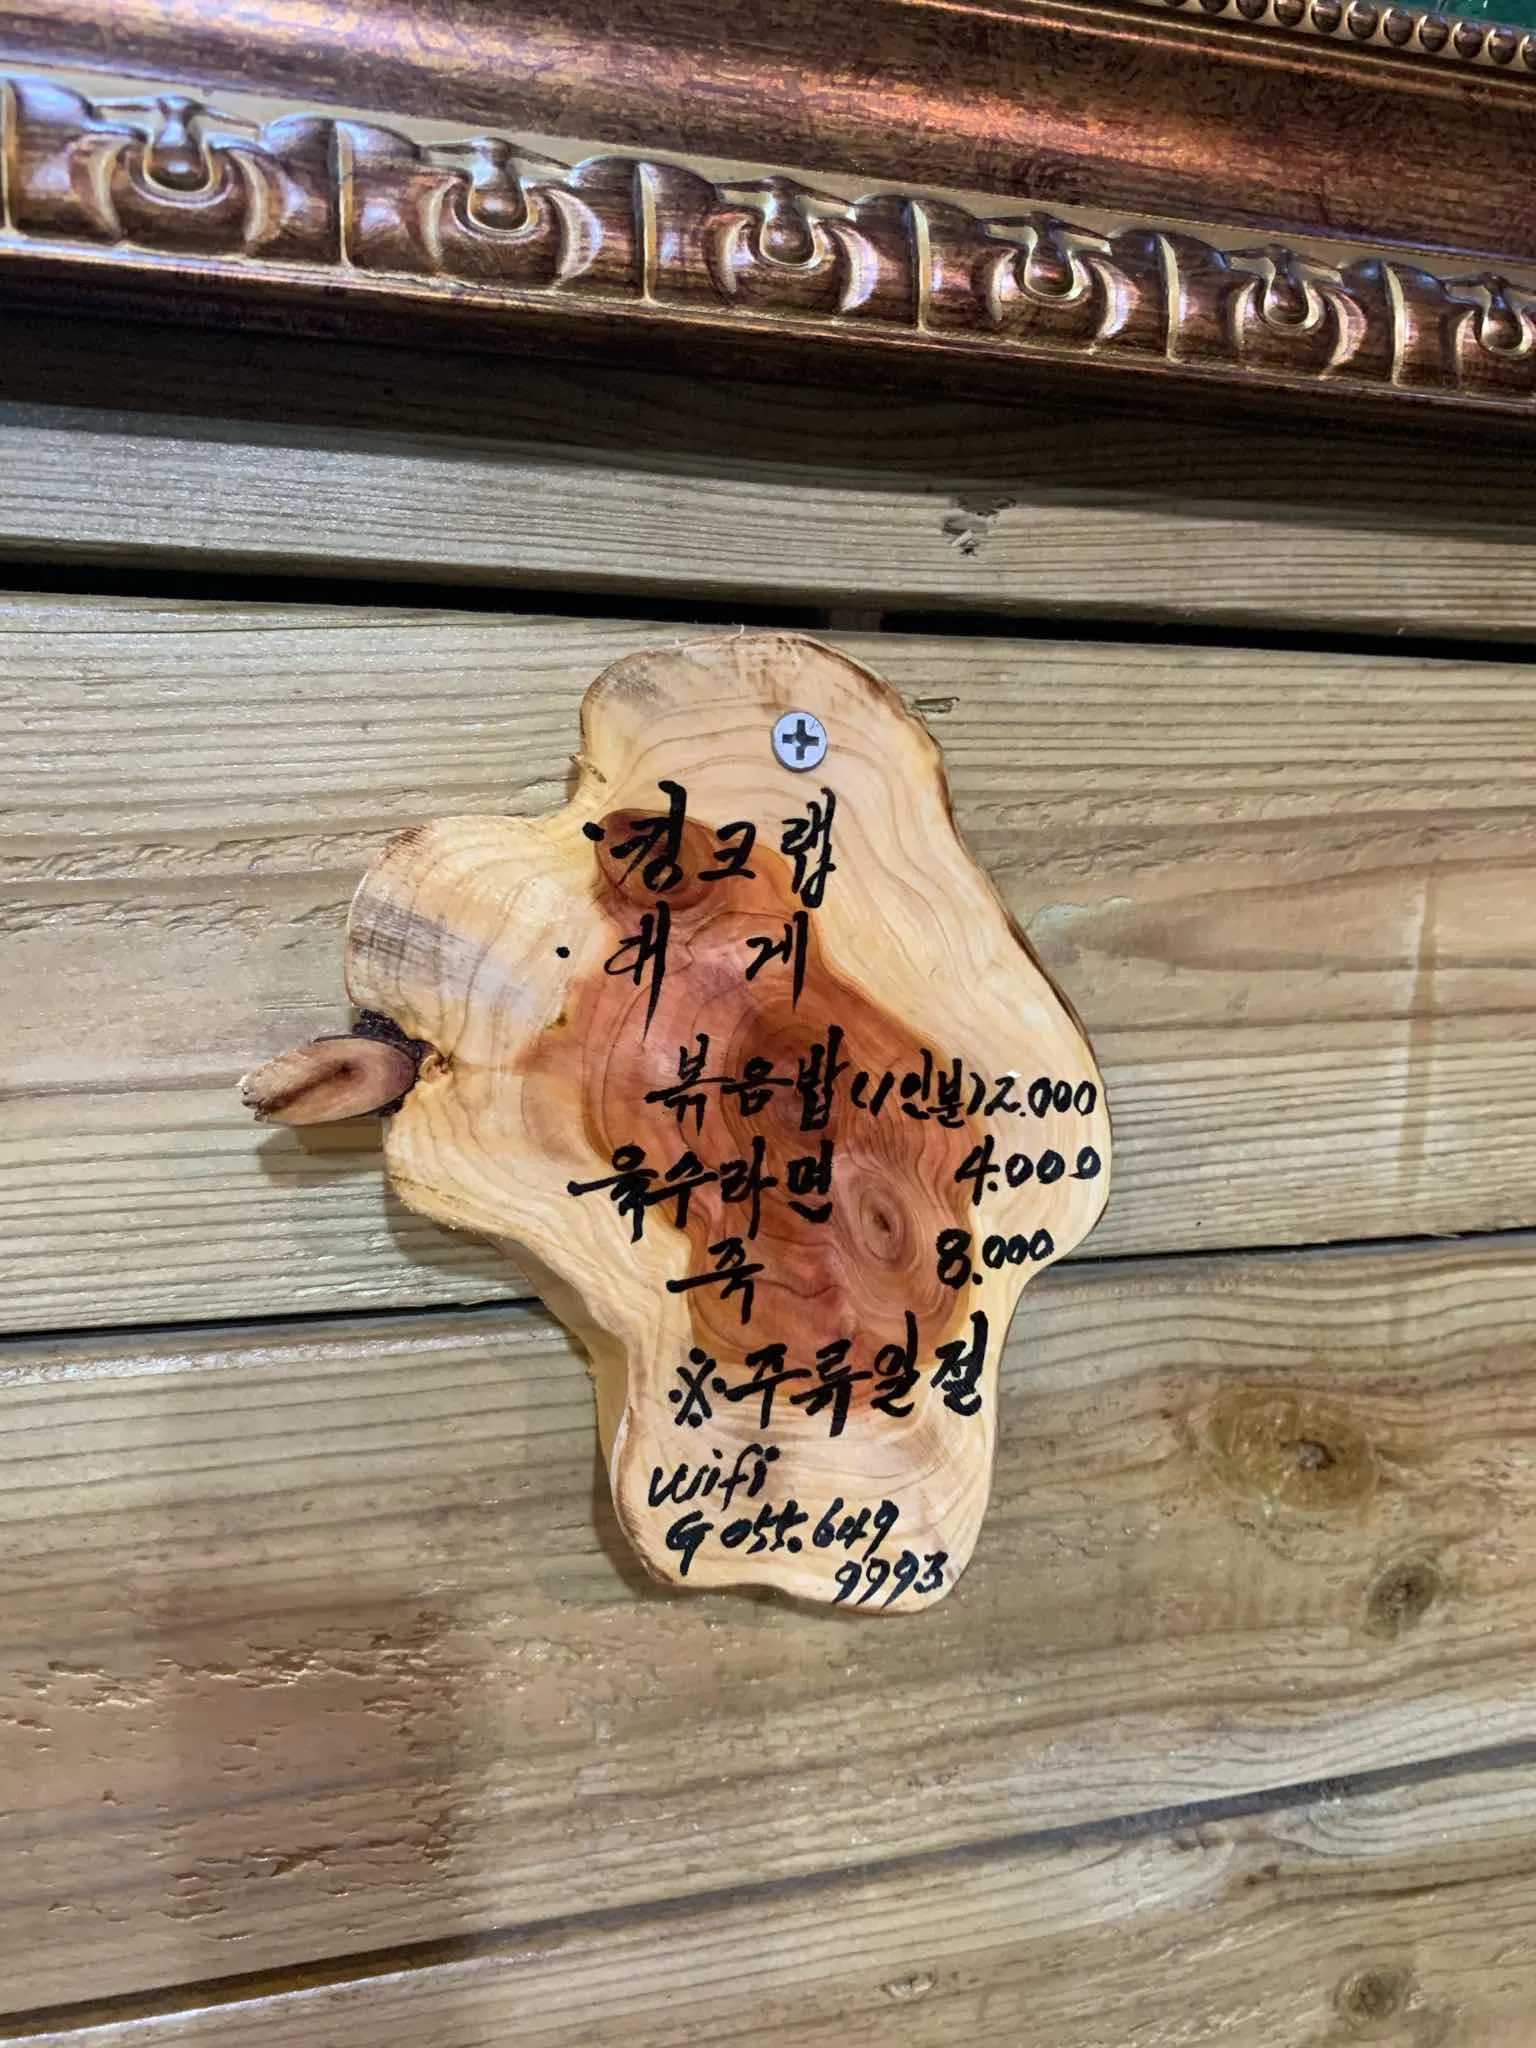 ·킹크랩
·대게
볶음밥(1인분)2.000
육수라면 4.000
죽 8.000
※주류일절
wifi
G 055.649
9993